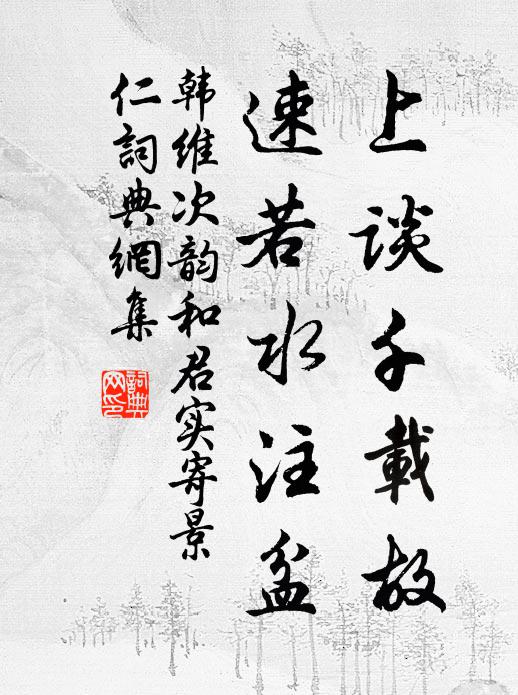 上談千載故
速若水注盆
韩维次韵和君实寄景
仁詞典網集
詞典
网印